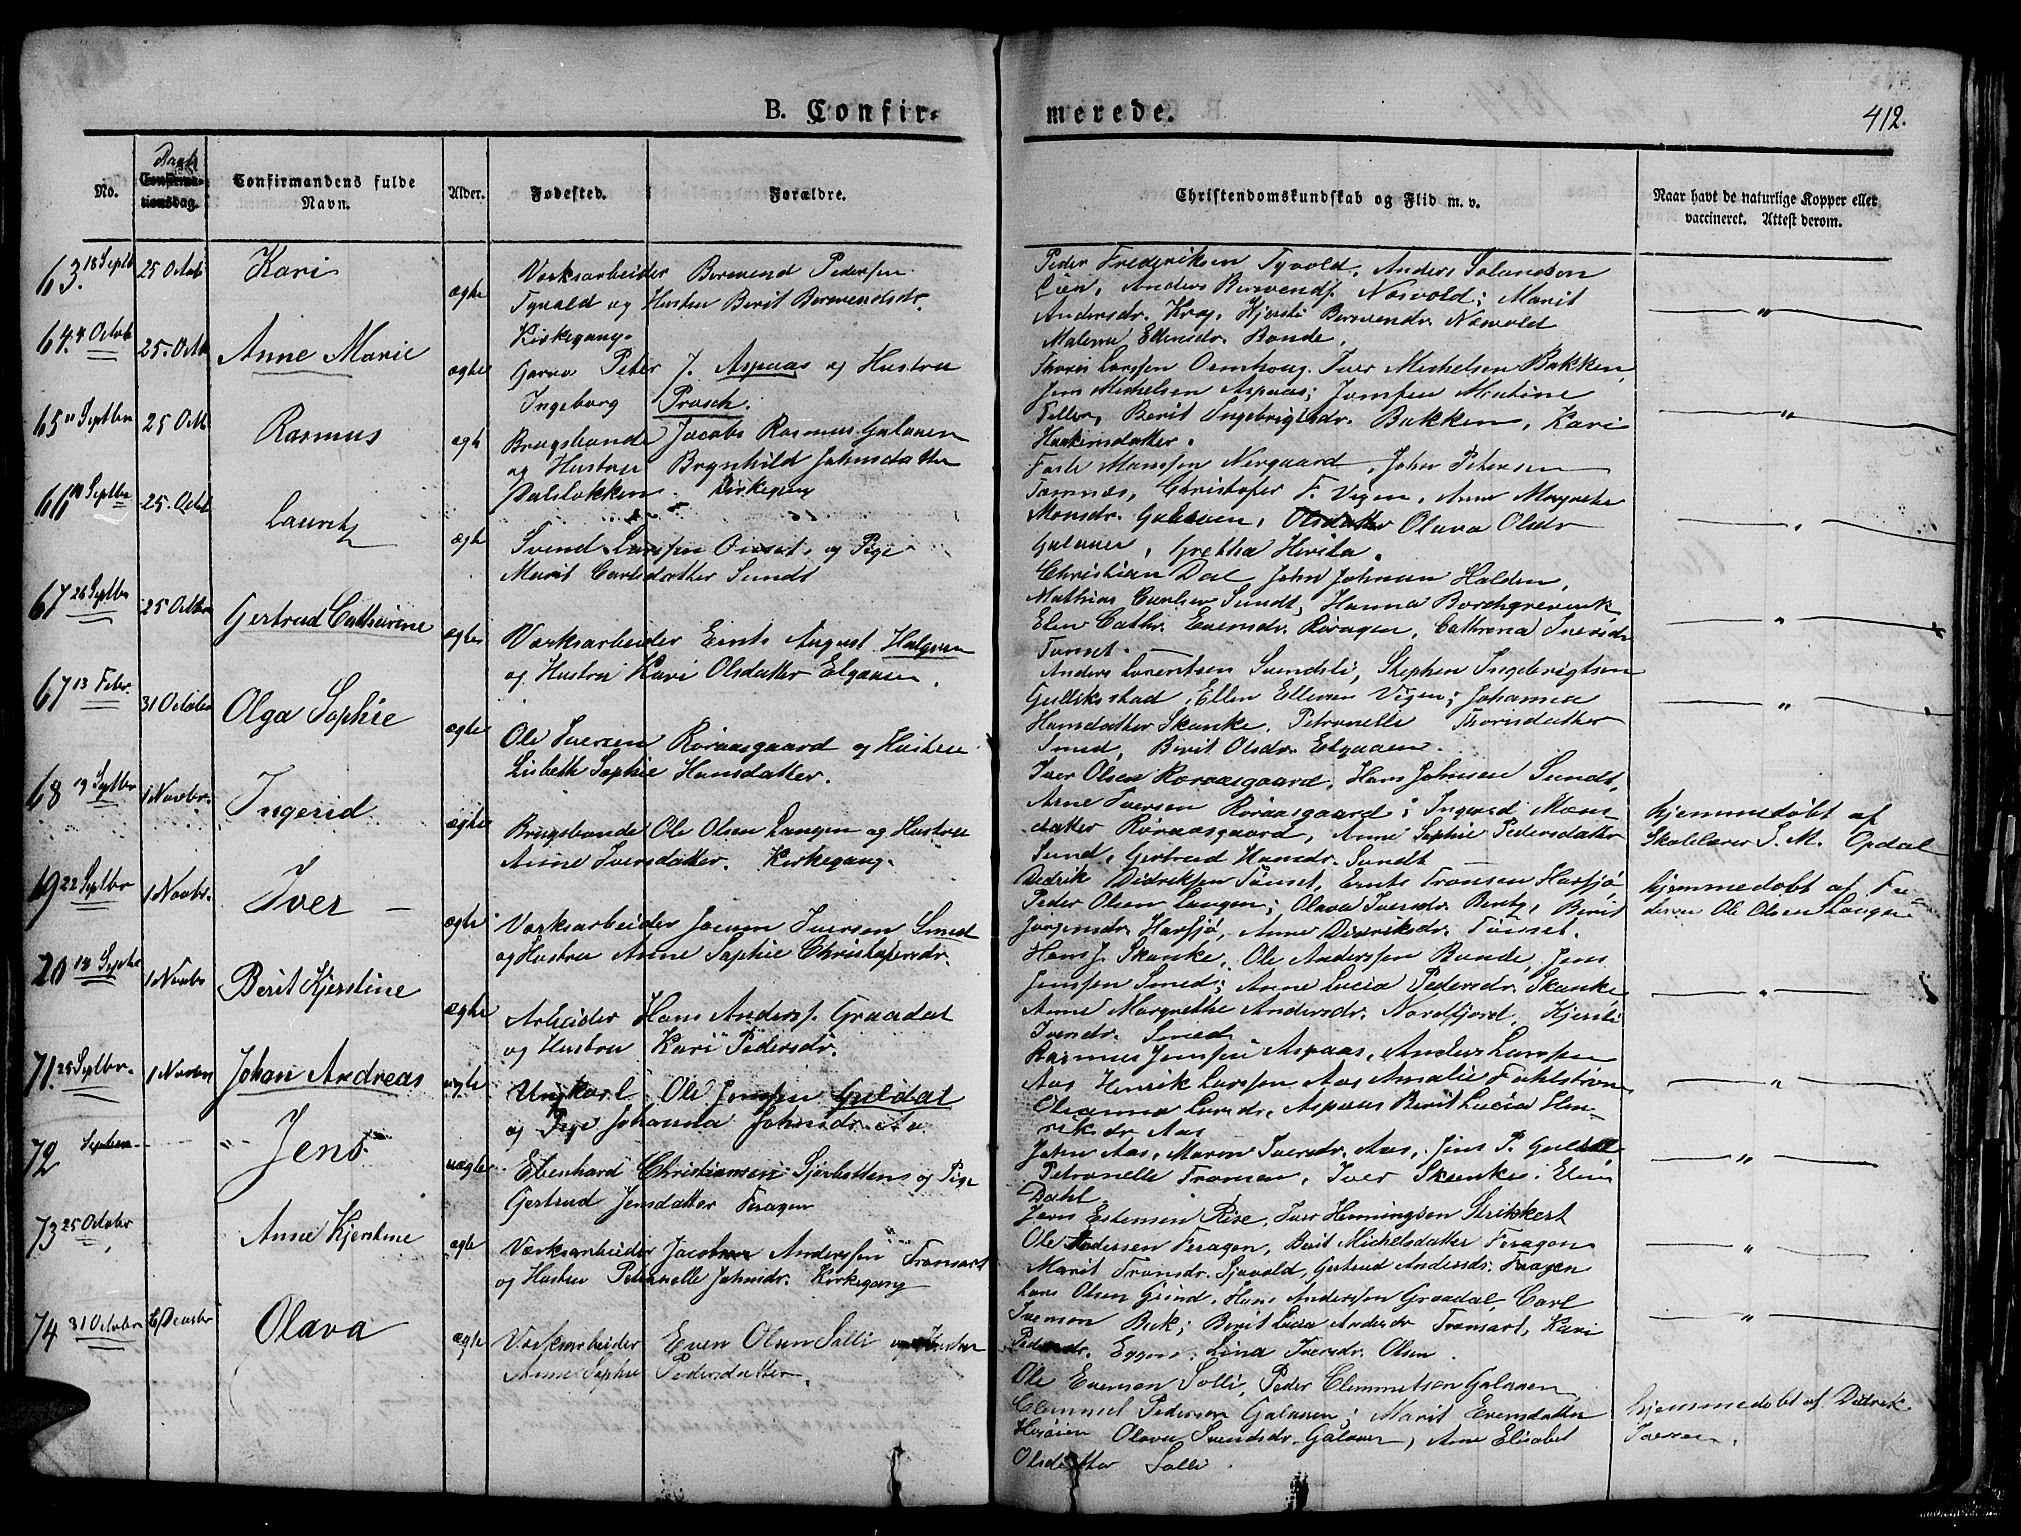 B. Confir-
merede.
412.
No.
Daab
Confirma-
tionsdag.
Confirmandens fulde
Navn.
Alder.
Fødested.
Forældre.
Christendomskundskab og Flid m. v.
Naar havt de naturlige Kopper eller
vaccineret. Attest derom.
63. 18 Septb 25 Octob Kari ægte
Værksarbeider Berevend Pedersen
Tyvold og Hustru Berit Berevendsdr.
Kirkegang.
Peder Frederiksen Tyvold, Anders
Lien, Anders Berevends. Nosvold; Marit
Andersdr. Krog, Kjersti Berevendr. Nosvold
Malene Ellensdr. Bonde.
64. 4 Octob 25. Octb Anne Marie ægte
Garver Peter J. Aspaas og Hustru
Ingeborg Prosch.
Larssen Ormhoug, Iver Michelsen Bakken,
Jens Michelsen Aspaas; Jomfru Martine
Feller, Berit Ingebrigtsdr. Bakken, Kari
Haakensdatter.
65 11 Septbr 25 Octb Rasmus ægte
Brugsbonde Jacob Rasmus. Galaaen
og Hustru Brynhild Johnsdatter
Dalsbakken. Kirkegang
Monssen Nergaard, John Petersen
Tamnæs, Christofer F. Vigen, Anne Margrethe
Monsdr. Galaaen, Olsdatter Olava Olsdr
Galaaen, Gretha Hivita.
66 Septbr 25. Octob Lauritz ægte
Svend Larssen Onset, og Pige
Marit Carlsdatter Sundt
Christian Dal, John Johnsen Halden,
Mathias Carlsen Sundt, Hanna Borchgrevink,
Elen Cathr. Evensdr. Røragen, Cathrena Iversdr.
Tønset.
67 26 Septbr 25 Octbr Gertrud Catharine ægte
Værksarbeider Ernts August Holgren
og Hustru Kari Olsdatter Elgaaen.
Anders Lorentsen Svendsli, Stephen Ingebrigtsen
Gulliksstad, Ellen Ellevsen Vigen; Johanna
Hansdatter Skanke, Petronelle Thomsdatter
Smed, Berit Olsdr. Elgaaen.
67 13 Febr. 31 October Olga Sophie ægte
Ole Iversen Røraasgaard og Hustru
Lisbeth Sophie Hansdatter.
Iver Olsen Røraasgaard, Hans Johnsen Sundt,
Arne Iversen Røraasgaard; Ingered Mons
datter Røraasgaard, Anne Sophie Pedersdatter
Sund, Gertrud Hansdr. Sundt
68 19 Septbr 1 Novbr. Ingerid ægte
Brugsbonde Ole Olsen Langen og Hustru
Anne Iversdatter. Kirkegang.
Didrik Didriksen Tønset, Ernts Tronsen Harsjø,
Peder Olsen Langen; Olava Iversdr. Bentz, Berit
Jørgensdr. Harsjø, Anne Didriksdr. Tønset.
hjemmedøbt af
Skolelærer S. M. Opdal
69 22 Septbr 1 Novbr. Iver ægte
Værksarbeider Joen Iversen Smed
og Hustru Anne Sophie Christofersdr.
Hans J. Skanke, Ole Anderssen Bonde, Jens
Jenssen Smed; Anne Lucia Pedersdr. Skanke
Anne Margrethe Andersdr. Nordfjord, Kjersti
Iversdr. Smed
hjemmedøbt af Fa-
deren Ole Olsen Langen
70 14 Septbr 1 Novbr Berit Kjerstine ægte
Arbeider Hans Anderss. Graadal
og Hustru Kari Pedersdr.
Rasmus Jenssen Aspaas, Anders Larssen
Aas, Henrik Larssen Aas, Amalie Fahlstrøm
Oleanna Larsdr. Aspaas, Berit Lucia Hen-
riksdr Aas
71. 25 Septbr. 1 Novbr Johan Andreas uægte
Ungkarl Ole Jenssen Guldal
og Pige Johanna Johnsdr. Aa
John Aas, Maren Iversdr. Aas, Jens P. Guldal
Petronelle Tronsen, Iver Skanke, Elen
Dahl
72 Septbr Jens uægte
Ebenhard Christiansen Sjøbotten og Pige
Gertrud Jensdatter Feragen
Jens Estensen Rise, Iver Henningsen Strikkert
Ole Andersen Feragen, Berit Michelsdatter Feragen
Marit Tronsdr. Sjøvold, Gertrud Andersdr. Feragen
73 25 Octobr Anne Kjerstine ægte
Værksarbeider Jacob Anderssen Tronsart
og Hustru Petronelle Johnsdr. Kirkegang
Lars Olsen Grind, Hans Anderssen Graadal, Carl
Iversen Bek; Berit Lucia Andersdr Tronsart, Kari
Pedersdr. Eggen, Lina Iversdr. Olsen.
74 31 Octobr 6 Decbr Olava ægte
Værksarbeider Even Olsen Solli og Hustru
Anne Sophie Pedersdatter.
Ole Evensen Solli, Peder Clemmetsen Galaaen,
Clemmet Pedersen Galaaen; Marit Evensdatter
Hersjøien Olava Svendsdr. Galaaen, Ane Elisabet
Olsdatter Solli.
hjemmedøbt af Didrik
Iversen.